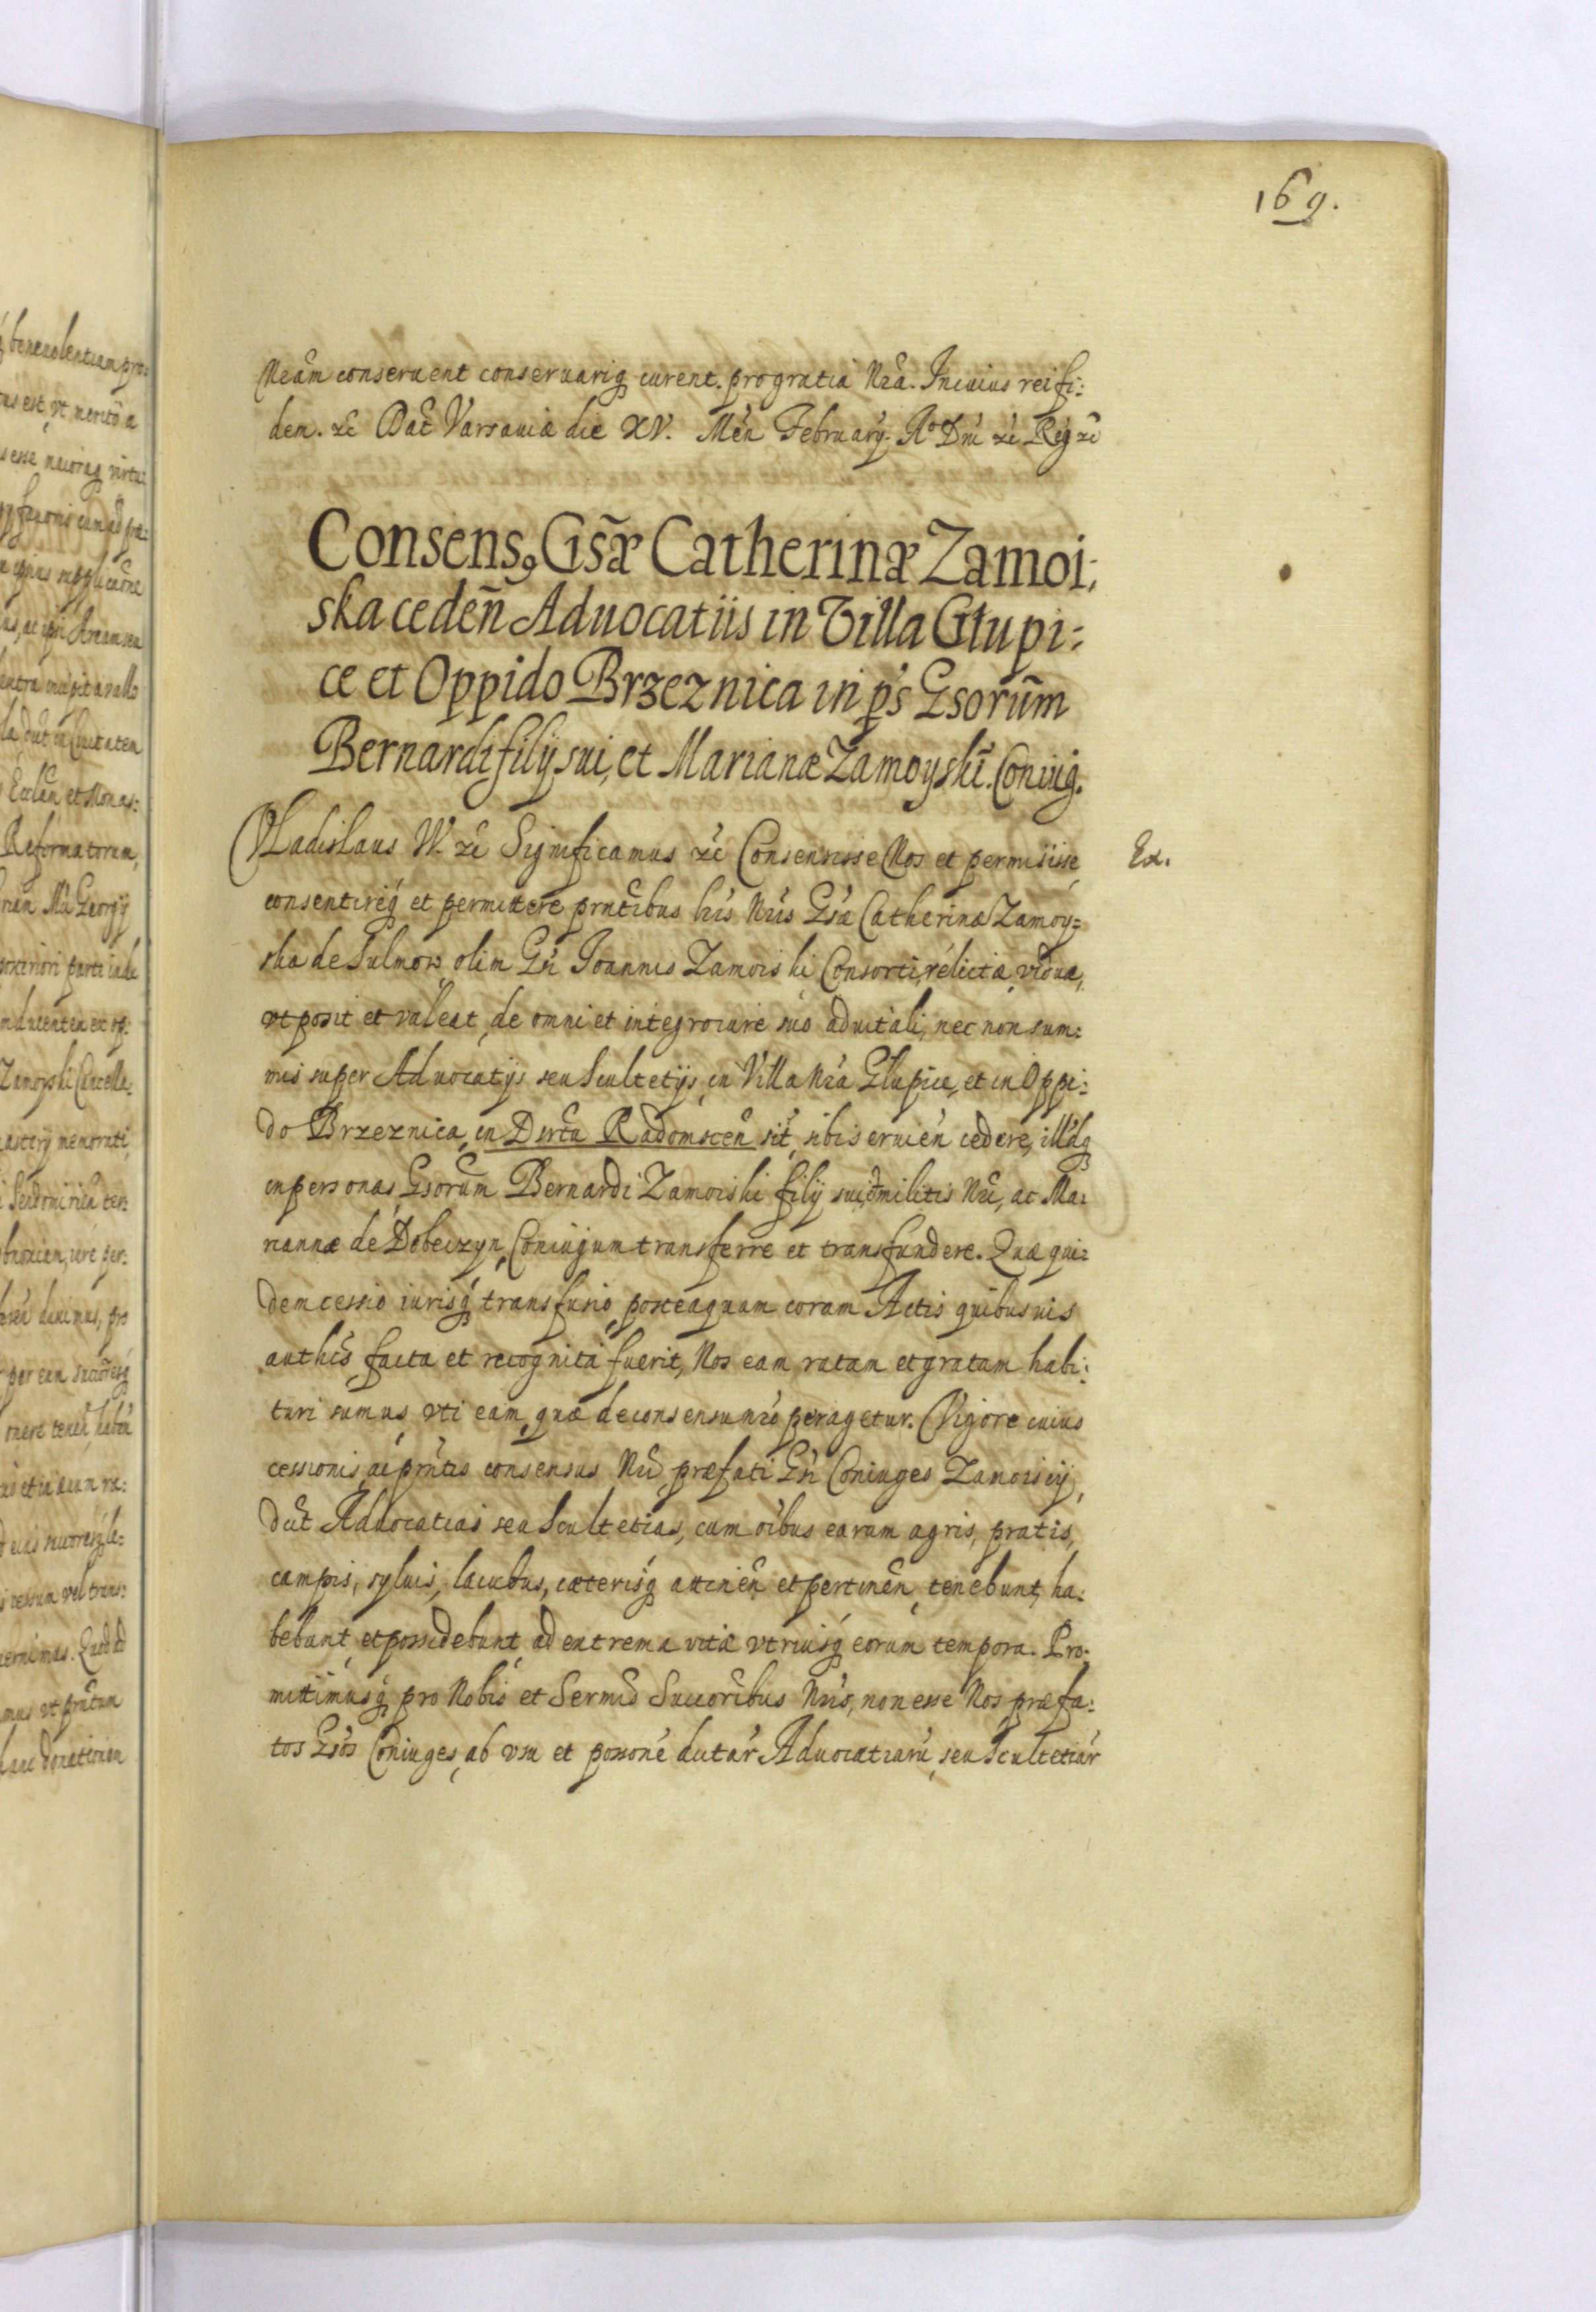 169.
Neām conseruent conseruariq; curent. pro gratia Nrā. In cuius rei fi:
dem. zc̄ Dat̄ Varsauiæ die XV. Men̄ February. Aº Dnī zc̄ Reg zc̄
Consens9 Gsæ Catherinæ Zamoi:
ska ceden̄ Aduocatiis in Villa Glupi:
ce et Oppido Brzeznica in ps̄ Gsorūm
Bernardi filÿ sui, et Marianæ Zamoyski. Coniug.
Vladislaus W. zc̄ Significamus zc̄ Consensisse Nos et permisisse
Ex.
consentireq; et permittere prntībus lrīs Nrīs Gsæ Catherinæ Zamoy:
ska de Sulmow, olim Gsi Joannis Zamoiski Consorti, relictæ viduæ,
vt possit et valeat, de omni et integro iure suo aduitali, nec non sum:
mis super Aduocatÿs seu Scultetÿs, in Villa Nrā Glupice, et in Oppi:
do Brzeznica, in Dsrtū Radomscen̄ sit̄, sibi seruien̄ cedere, illdq;
in personas Gsorum Bernardi Zamoiski filÿ sui, militis Nrī, ac Ma:
riannæ de Dobeczyn, Coniugum transferre et transfundere. Quæ qui:
dem cessio iurisq; transfusio, posteaquam coram Actis quibusuis
authīs facta et recognita fuerit, Nos eam ratam et gratam habi:
turi sumus, vti eam, quæ de consensu nrō peragetur. Vigore cuius
cessionis, ac prntīs consensus Nrī, præfati Gsi Coniuges Zamoiscÿ,
dct̄ Aduocatias seu Scultetias, cum oībus earum agris, pratis,
campis, syluis, lacubus, cæterisq; attinen̄ et pertinen̄, tenebunt, ha:
bebunt, et possidebunt, ad extrema vitæ vtriusq; eorum tempora. Pro:
mittimusq; pro Nobis et Sermīs Succorībus Nrīs, non esse Nos præfa:
tos Gsos Coniuges, ab vsu et possonē dctar̄ Aduocatiarū, seu Scultetiar̄